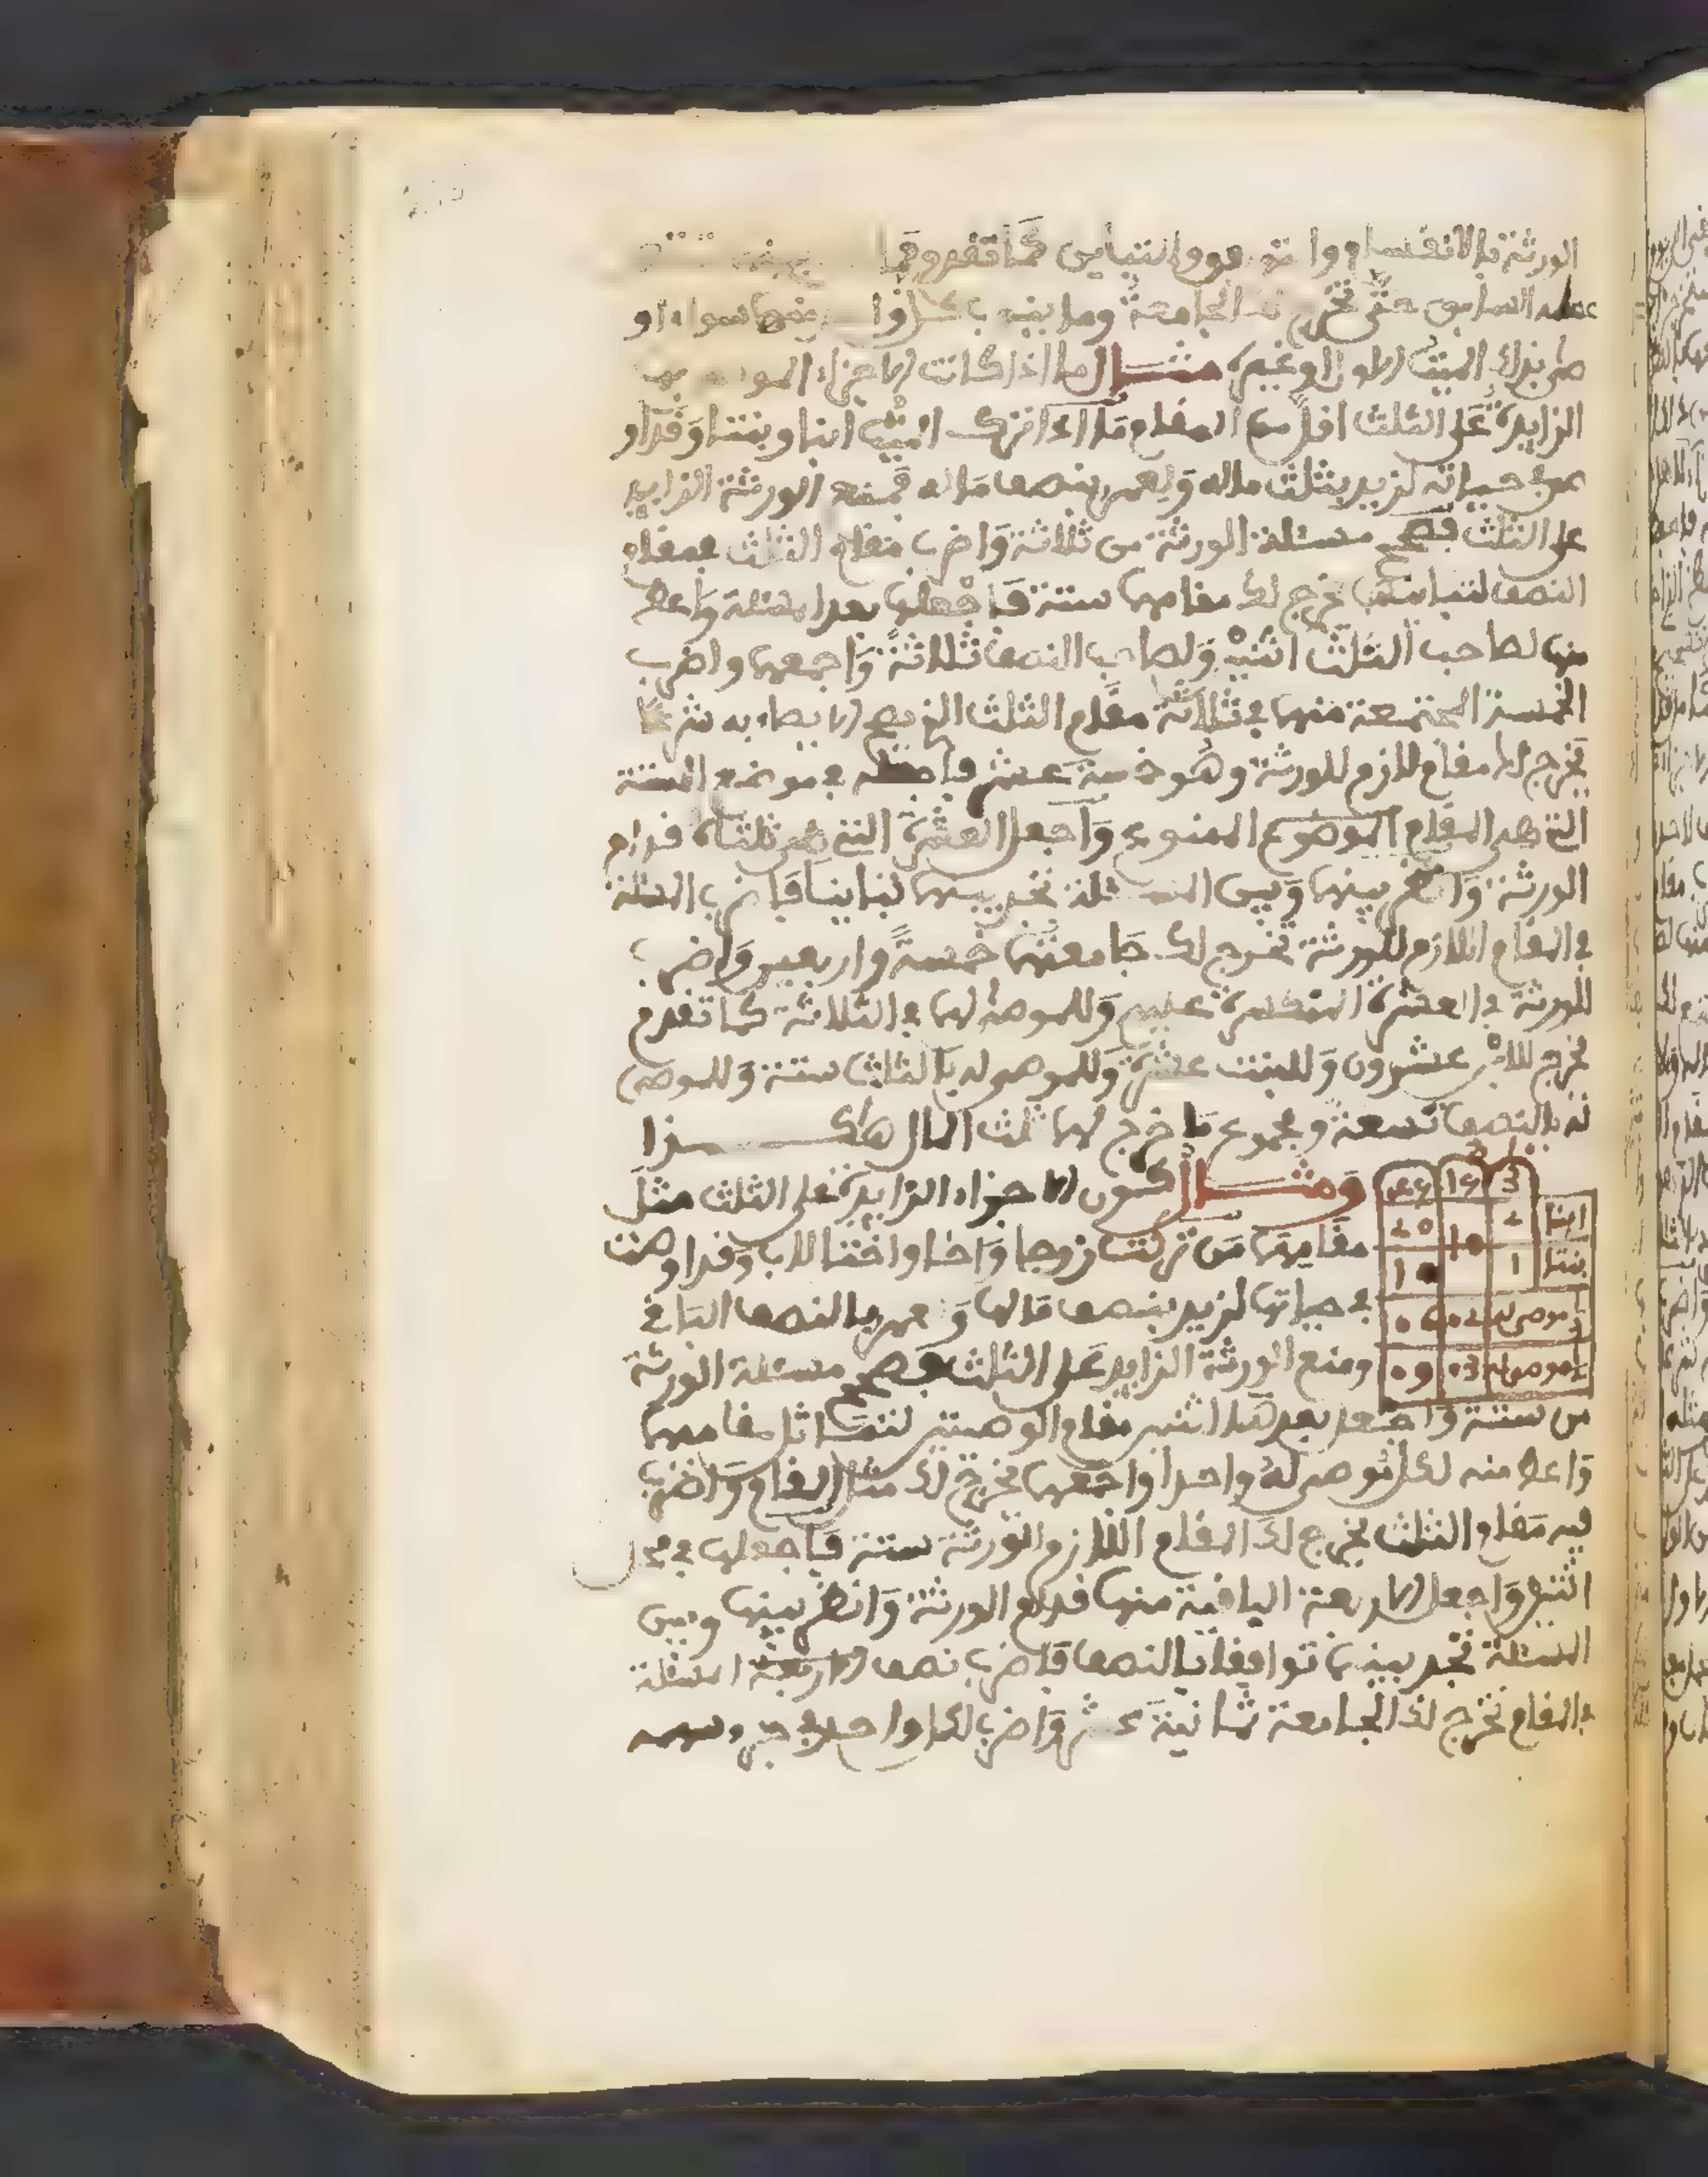 الورثة بالانقسام والتوافق والتباين كما تقدم
عمله السابق حتى تخرج لك الجامعة وما بقي سواء او
طر بذلك الميت الاول او غيره مثال ما اذا كانت الاجزاء
الزايدة على الثلث اقل من المقام ما اذا ترك الميت ابنا وبنتا وقد او
صى في حياته لزيد بثلث ماله ولعمر بنصف ماله فمنع الورثة الزايد
على الثلث فصحح مسئلة الورثة من ثلاثة واضرب مقام الثلث في مقام
النصف لتباينهما يخرج لك مقامهما ستة فاجعلها بعد المسئلة واعط
منها لصاحب الثلث اثنين ولصاحب النصف ثلاثة واجمعها واضرب
الخمسة المجتمعة منهما في ثلاثة مقام الثلث الذي يصح الايصاء به شرعا
يخرج لك مقام لازم للورثة وهو خمسة عشر فاجعله في موضع الستة
التي هي المقام الموضوع الممنوع واجعل العشرة التي هي ثلثاه قدام
الورثة وانظر بينها وبين المسئلة تجد بينهما تباينا فاضرب المسئلة
في المقام اللازم للورثة تخرج لك جامعتهما خمسة واربعين واضرب
للورثة في العشرة المنكسرة عليهم وللموصى لهما في الثلاثة كما تقدم
يخرج للابن عشرون وللبنت عشرة وللموصى له بالثلث ستة وللموصى
له بالنصف تسعة ومجموع ما خرج لهما ثلث المال هكذا
ومثال كون الاجزاء الزايدة على الثلث مثل
مقامهما من تركت زوجا واخا واختا للاب وقد اوصت
في حياتها لزيد بنصف مالها ولعمر بالنصف الباقي
ومنع الورثة الزايد على الثلث فصحح مسئلة الورثة
من ستة واجعل بعدها اثنين مقام الوصيتين لتماثل مقاميهما
واعط منه لكل موصى له واحدا واجمعهما يخرج لك مثل المقام واضرب
فيه مقام الثلث يخرج لك المقام اللازم للورثة ستة فاجعلها في محل
اثنين واجعل الاربعة الباقية منها قدام الورثة وانظر بينها وبين
المسئلة تجد بينهما توافقا بالنصف فاضرب نصف المسئلة
في المقام تخرج لك الجامعة ثمانية عشر واضرب لكل واحد في جزء سهمه
3 15 45
ابنا 2 10 20
بنتا 1 10
موصى له 02 06
موصى له 03 09